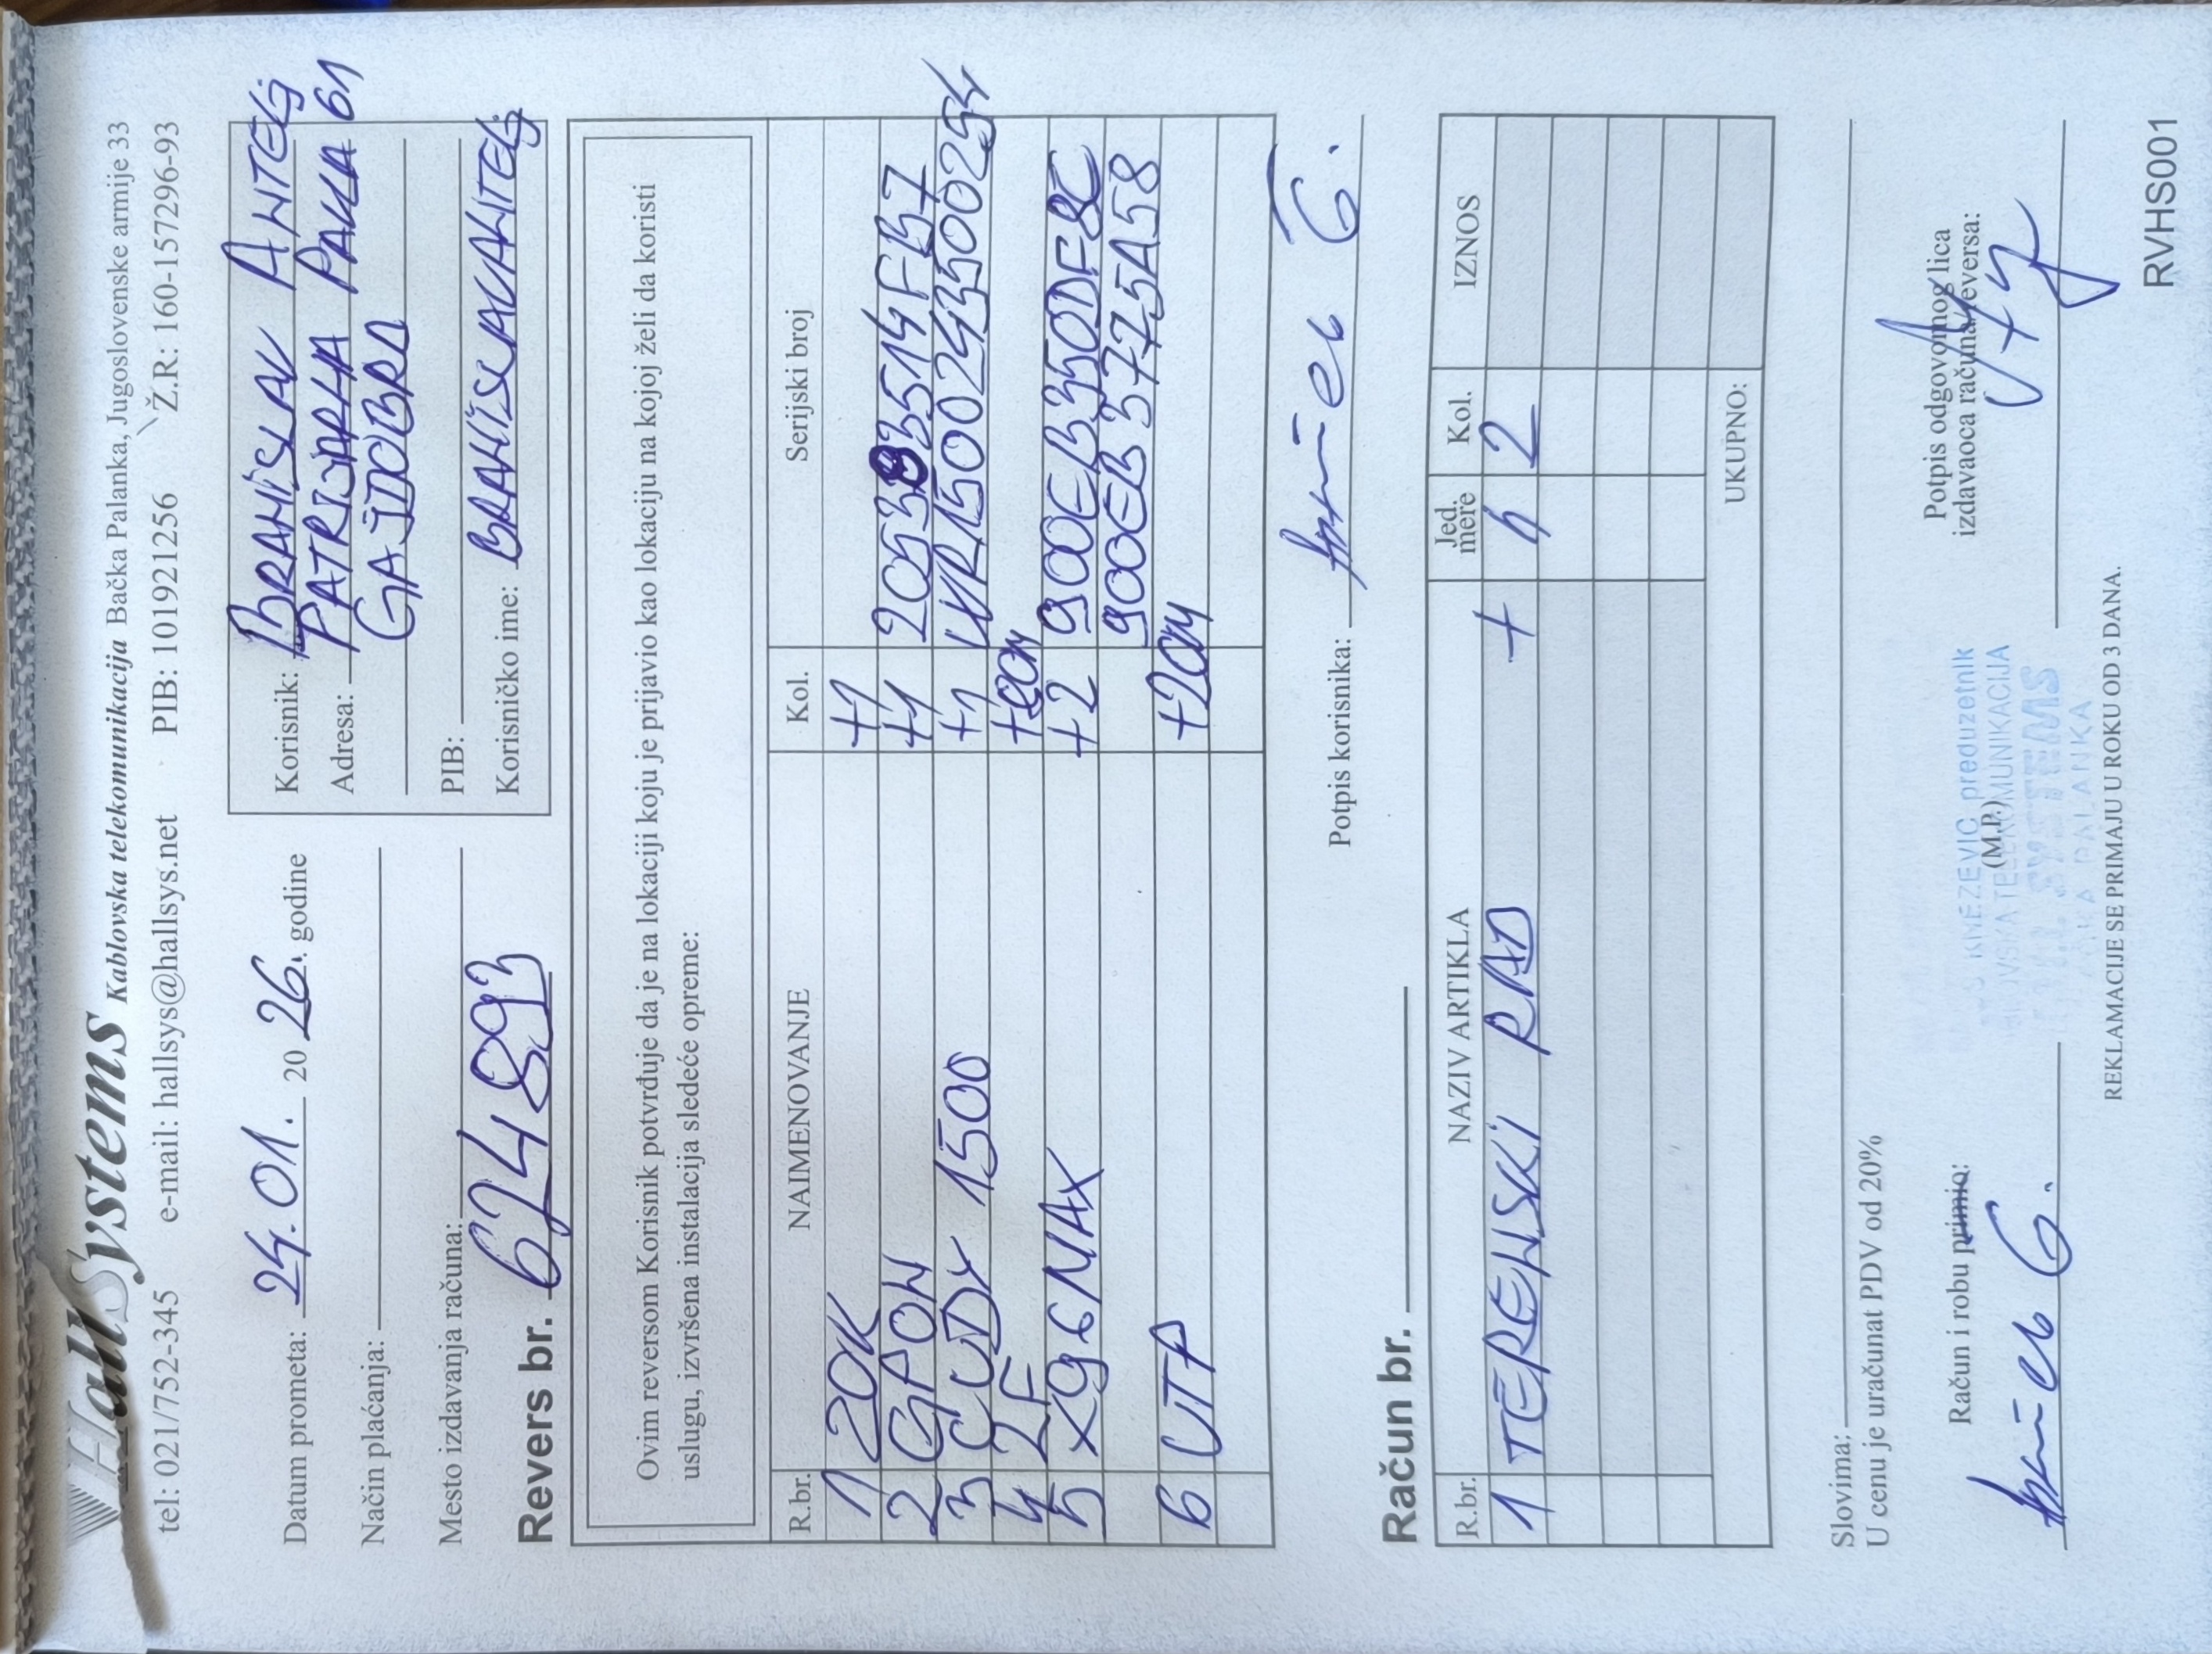 HallSystems Kablovska telekomunikacija Bačka Palanka, Jugoslovenske armije 33
tel: 021/752-345 e-mail: hallsys@hallsys.net PIB: 101921256 Ž.R: 160-157296-93
Datum prometa: 24.01. 20 26. godine
Način plaćanja:
Mesto izdavanja računa:
Revers br. 674893
Korisnik: BRANISLAV ANTELJ
Adresa: PATRIJARHA PAVLA 61
GAJDOBRA
PIB:
Korisničko ime: BRANISLAVANTELJ
Ovim reversom Korisnik potvrđuje da je na lokaciji koju je prijavio kao lokaciju na kojoj želi da koristi
uslugu, izvršena instalacija sledeće opreme:
R.br. NAIMENOVANJE Kol. Serijski broj
1 ZOK +1
2 GPON +1 205383514FB7
3 CUDY 1500 +1 WR1500243500254
4 2F
5 X9GMAX +2 900EB350DF8C
900EB3775A58
6 UTP +20m
Potpis korisnika:
Račun br.
R.br. NAZIV ARTIKLA Jed. mere Kol. IZNOS
1 TERENSKI RAD + h 2
UKUPNO:
Slovima:
U cenu je uračunat PDV od 20%
Račun i robu primio:
(M.P.)
KNEZEVIC preduzetnik
Potpis odgovornog lica
izdavaoca računa/reversa:
REKLAMACIJE SE PRIMAJU U ROKU OD 3 DANA.
RVHS001